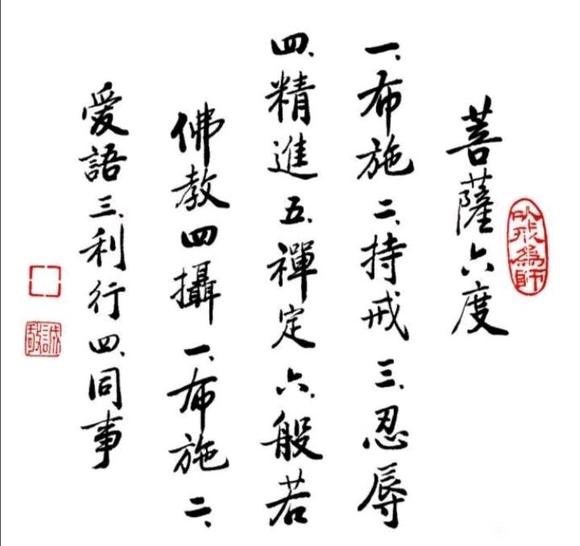 菩薩六度
一、布施二、持戒三、忍辱
四、精進五、禪定六、般若
佛教四攝一、布施二、
愛語三、利行四、同事